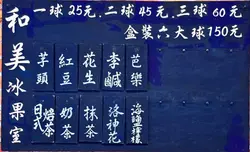 和美冰果室
一球25元、二球45元、三球60元
盒裝六大球150元
芋頭
紅豆
花生
李鹹
芭樂
日式焙茶
奶茶
抹茶
洛神花
海鹽檸檬